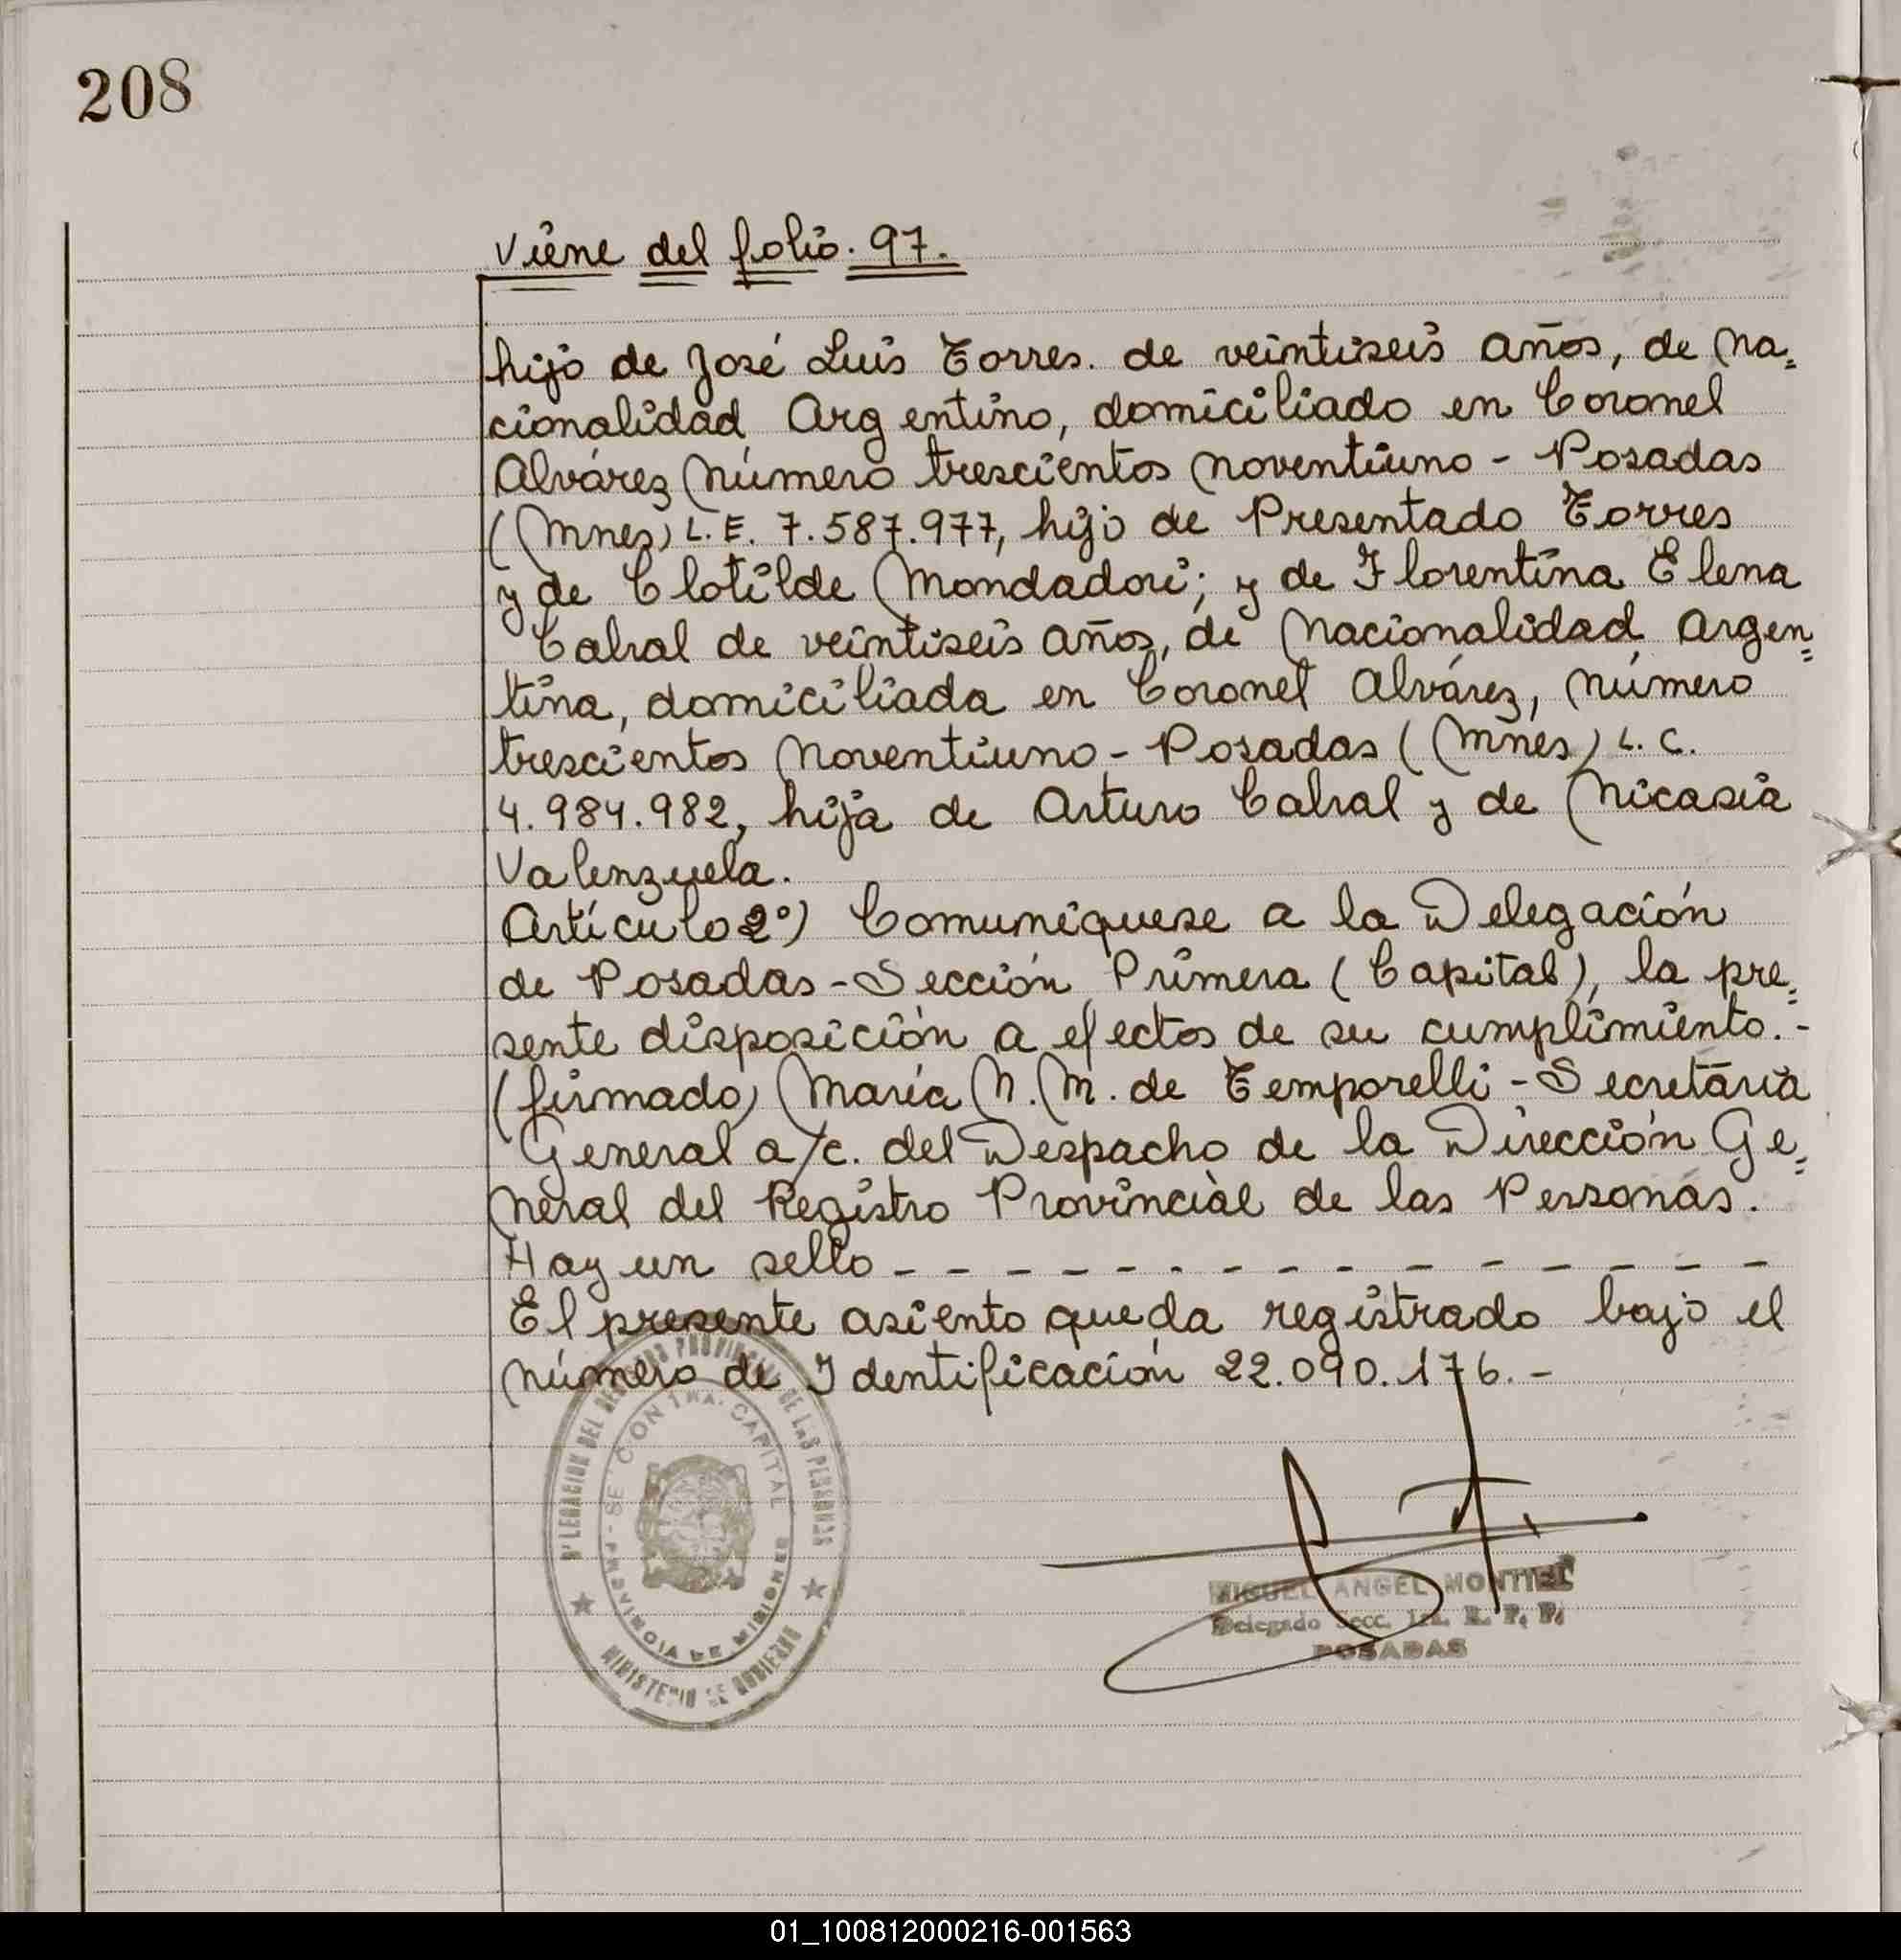 208
Viene del folio. 97.
hijo de José Luis Torres. de veintiseis años, de na=
cionalidad Argentino, domiciliado en Coronel
Alvárez número trescientos noventiuno - Posadas
(Mnes) L.E. 7.587.977, hijo de Presentado Torres
y de Clotilde Mondadori; y de Florentina Elena
Cabral de veintiseis años, de nacionalidad Argen=
tina, domiciliada en Coronel Alvárez, número
trescientos noventiuno - Posadas (Mnes) L.C.
4.984.982, hija de Arturo Cabral y de Nicasia
Valenzuela.
Artículo 2º) Comuníquese a la Delegación
de Posadas - Sección Primera (Capital), la pre=
sente disposición a efectos de su cumplimiento.-
(firmado) María N.M. de Temporelli - Secretaria
General a/c. del Despacho de la Dirección Ge=
neral del Registro Provincial de las Personas.
Hay un sello - - - - - - - - - - - - - - - -
El presente asiento queda registrado bajo el
número de Identificación 22.090.176.-
DELEGACION DEL REGISTRO PROVINCIAL DE LAS PERSONAS
SECCION 1RA. CAPITAL
PROVINCIA DE MISIONES
MINISTERIO DE GOBIERNO
MIGUEL ANGEL MONTIEL
Delegado Secc. 1ra. R. P. P.
POSADAS
01_100812000216-001563